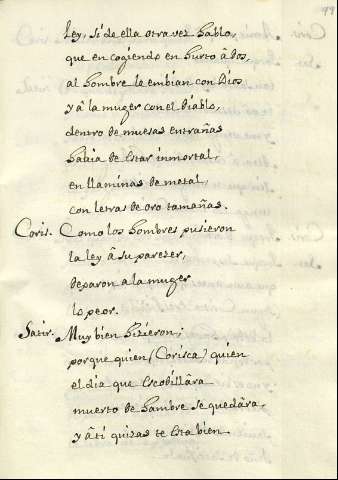 99
Ley, si de ella otra vez hablo,
que en cogiendo en hurto â dos,
al hombre le embian con Dios
y â la muger con el Diablo,
dentro de muesas entrañas
havia de estar inmortal,
en llaminas de metal,
con letras de oro tamañas.
Coris. Como los hombres pusieron
la ley â su parezer,
dexaron a la muger
lo peor.
Satir. Muy bien hizieron;
porque quien (Corisca) quien
el dia que escobillâra
muerto de hambre se quedâra,
y â ti quizas te esta bien